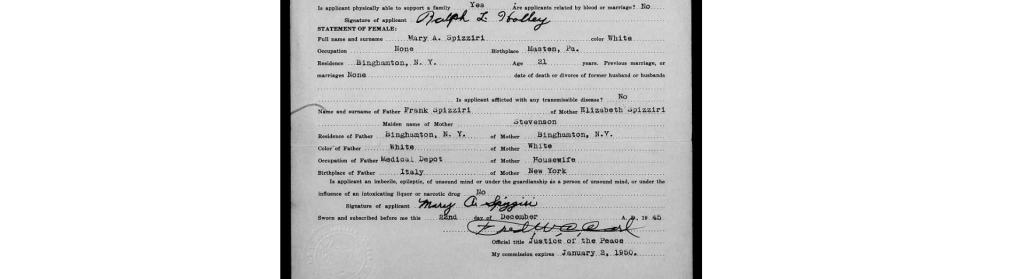 Is applicant physically able to support a family Yes Are applicants related by blood or marriage? No
Signature of applicant Ralph L. Holley
STATEMENT OF FEMALE:
Full name and surname Mary A. Spizziri color White
Occupation None Birthplace Masten, Pa.
Residence Binghamton, N. Y. Age 21 years. Previous marriage, or
marriages None date of death or divorce of former husband or husbands
Is applicant afflicted with any transmissible disease? No
Name and surname of Father Frank Spizziri of Mother Elizabeth Spizziri
Maiden name of Mother Stevenson
Residence of Father Binghamton, N. Y. of Mother Binghamton, N.Y.
Color of Father White of Mother White
Occupation of Father Medical Depot of Mother Housewife
Birthplace of Father Italy of Mother New York
Is applicant an imbecile, epileptic, of unsound mind or under the guardianship as a person of unsound mind, or under the
influence of an intoxicating liquor or narcotic drug No
Signature of applicant Mary A. Spizziri
Sworn and subscribed before me this 22nd day of December A. D. 19 45
Official title Justice of the Peace
My commission expires January 2, 1950.